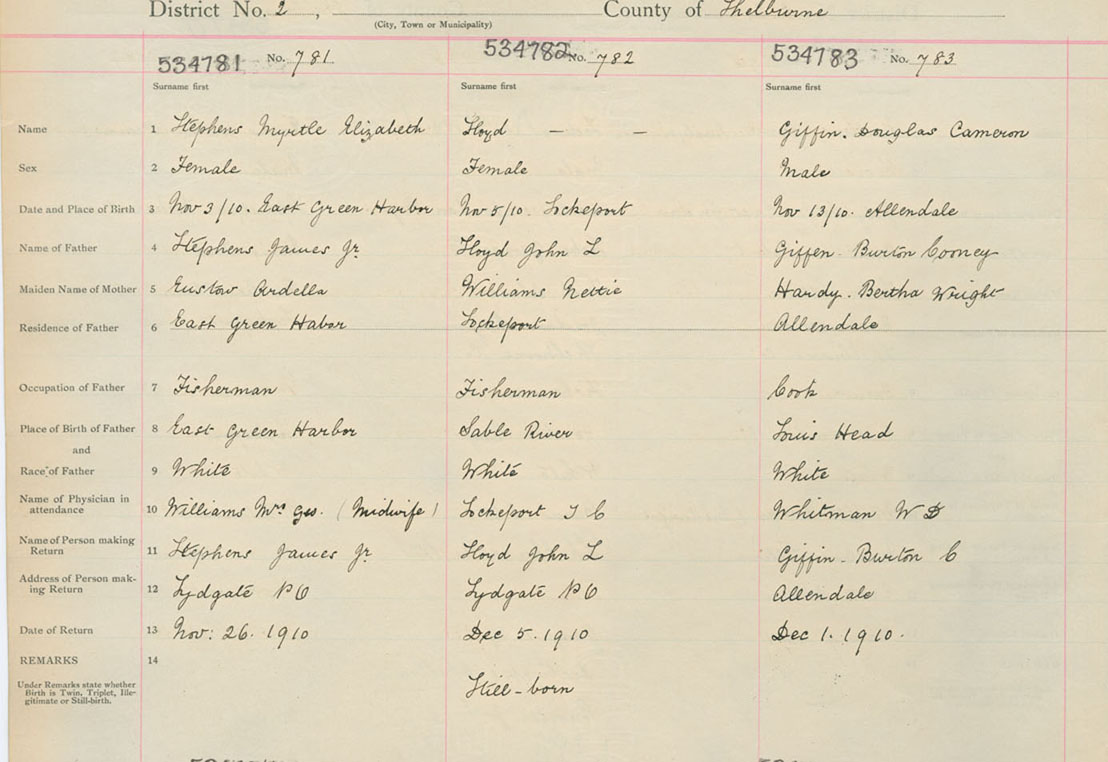 District No. 2 , County of Shelburne
(City, Town or Municipality)
534781 No. 781 534782 No. 782 534783 No. 783
Surname first Surname first Surname first
Name 1 Stephens Myrtle Elizabeth Lloyd — — Giffin. Douglas Cameron
Sex 2 Female Female Male
Date and Place of Birth 3 Nov 3/10. East Green Harbor Nov 5/10. Lockeport Nov 13/10. Allendale
Name of Father 4 Stephens James Jr. Lloyd John L Giffen. Burton Cooney
Maiden Name of Mother 5 Ardella Williams Nettie Hardy. Bertha Wright
Residence of Father 6 East Green Habor Lockeport Allendale
Occupation of Father 7 Fisherman Fisherman Cook
Place of Birth of Father 8 East Green Harbor Sable River Louis Head
and
Race of Father 9 White White White
Name of Physician in
attendance 10 Williams Mrs Geo. (Midwife) Lockeport Whitman W D
Name of Person making
Return 11 Stephens James Jr. Lloyd John L Giffin. Burton C
Address of Person mak-
ing Return 12 Lydgate P O Lydgate P O Allendale
Date of Return 13 Nov: 26. 1910 Dec 5. 1910 Dec 1. 1910.
REMARKS 14
Under Remarks state whether
Birth is Twin, Triplet, Ille-
gitimate or Still-birth.
Still-born